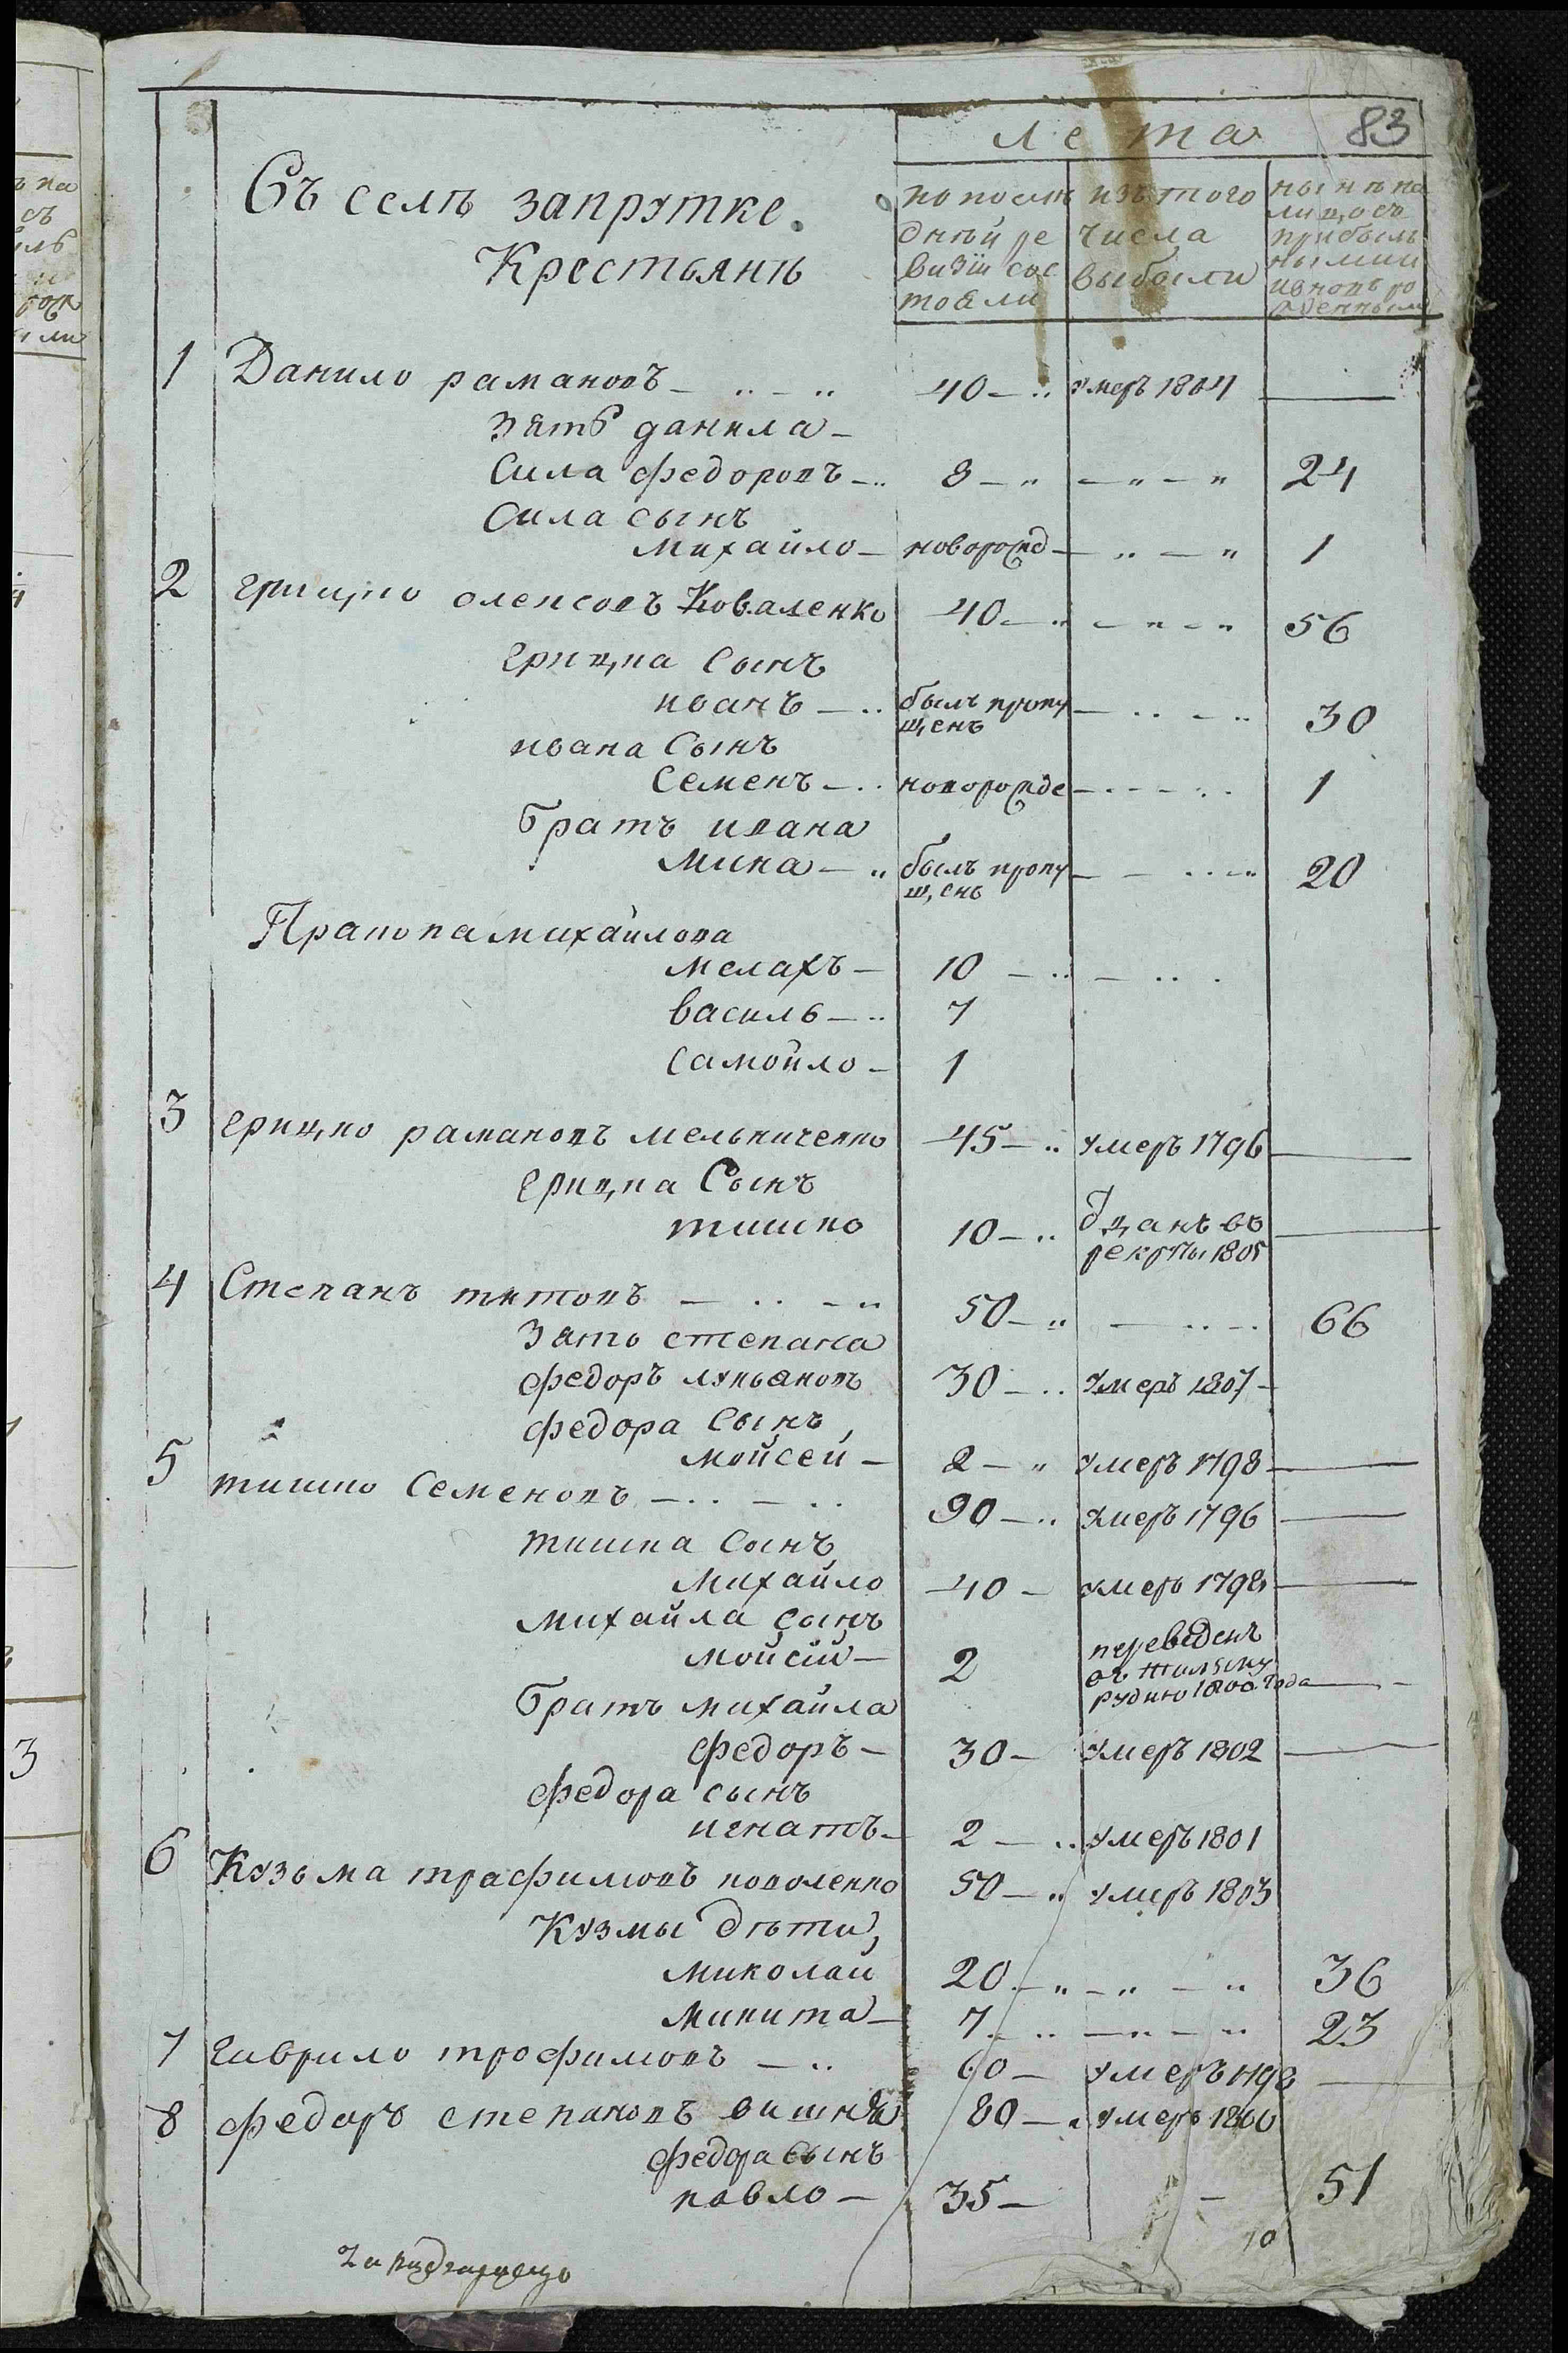 83
лета
Въ селѣ запрутке.
Крестьянъ
по послѣ
дней ре
визіи сос
тояли
изъ того
числа
выбыли
нынѣ на
лицо съ
прибыль
ными и
вновь ро
жденными
1 Данило рамановъ 40 умеръ 1804
Зять данила
Сила федоровъ 8 24
Сила сынъ
Михайло новорожд 1
2 грицко олексовъ Коваленко 40 56
грицка Сынъ
иванъ былъ пропу
щенъ 30
ивана Сынъ
Семенъ новорожде 1
Братъ ивана
Мина былъ пропу
щенъ 20
Пракопа михайлова
мелахъ 10
василь 7
самойло 1
3 грицко рамановъ мельниченко 45 умеръ 1796
грицка Сынъ
тишко 10 ѿданъ въ
рекруты 1805
4 Степанъ титовъ 50 66
Зять степана
федоръ лукьяновъ 30 умеръ 1807
федора Сынъ
мойсей 2 умеръ 1798
5 тишко Семеновъ 90 умеръ 1796
тишка Сынъ
Михайло 40 умеръ 1798
Михайла сынъ
мойсій 2 переведенъ
въ
рудню 1800 года
Братъ михайла
федоръ 30 умеръ 1802
федора сынъ
игнатъ 2 умеръ 1801
6 Кузьма трафимовъ коваленко 50 умеръ 1803
Кузмы дѣти,
Миколай 20 36
Микита 7 23
7 гаврило трофимовъ 60 умеръ 1798
8 федоръ степановъ вишня 80 умеръ 1800
федора Сынъ
павло 35 51
10